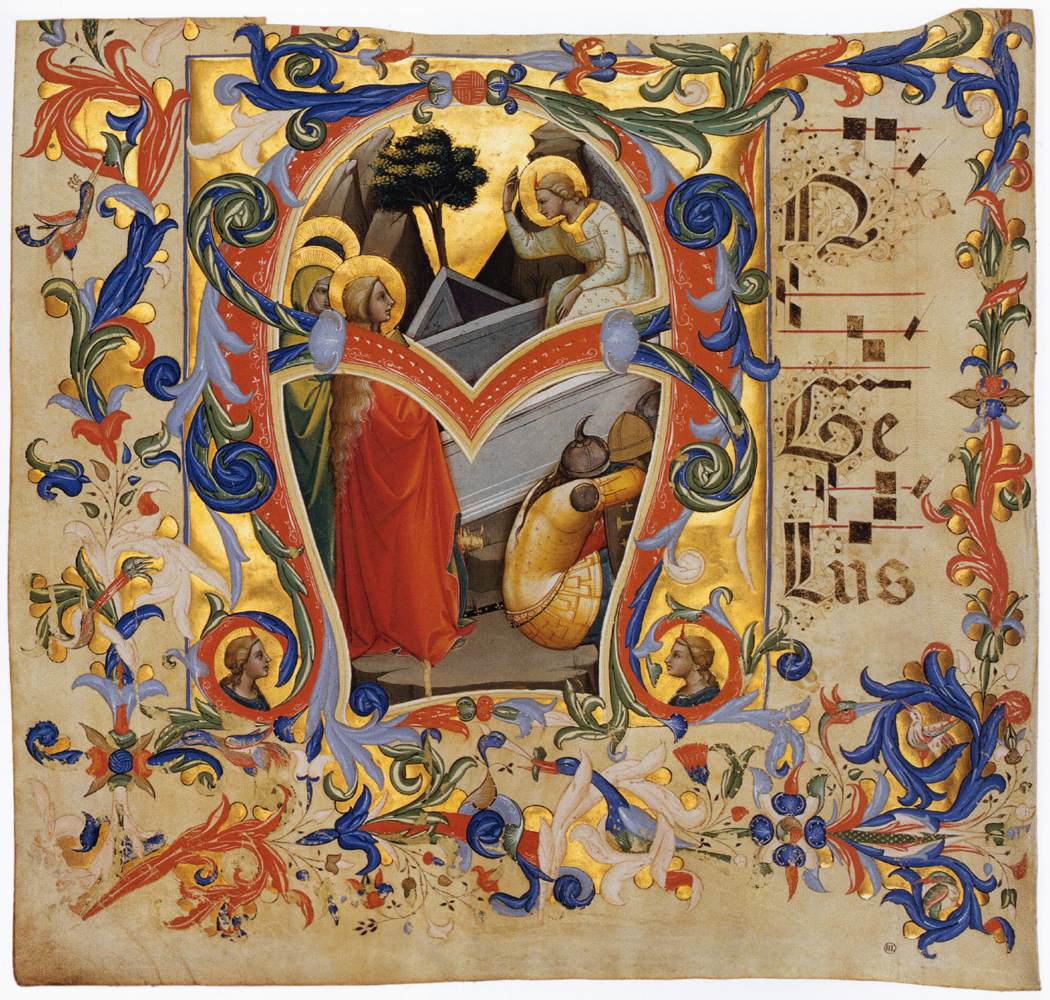 AN
ge
lus